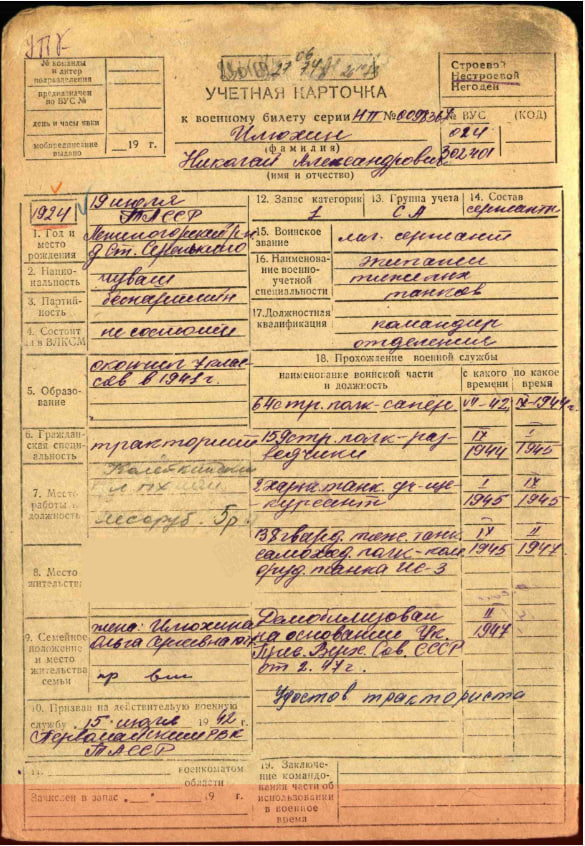 № команды
и литер
подразделения
предназначен
по ВУС №
день и часы явки
мобпредписание
выдано
19 г.
УЧЕТНАЯ КАРТОЧКА
к военному билету серии НП №
Илюхин
(фамилия)
Николай Александрович
(имя и отчество)
Строевой
Нестроевой
Негоден
№ ВУС (КОД)
024
302401
1924
19 июля
ТАССР
1. Год и
место
рождения
д. Ст.
2. Нацио-
нальность
чуваш
3. Партий-
ность
беспартийн
4. Состоит
ли в ВЛКСМ
не состоит
5. Образо-
вание
окончил 7 клас-
сов в 1941 г.
6. Гражданская
специальность
тракторист
7. Место
работы и
должность
лесоруб. 5 р
8. Место
жительства
9. Семейное
положение
и место
жительства
семьи
жена: Илюхина
Ольга
10. Призван на действительную военную
службу 15 июля 1942 г.
ТАССР
11.
военкоматом
области
Зачислен в запас „ “ 19 г.
12. Запас категории
1
13. Группа учета
СА
14. Состав
сержантск
15. Воинское
звание
мл. сержант
16. Наименование
военно-
учетной
специальности
экипажи
тяжелых
танков
17. Должностная
квалификация
командир
отделения
18. Прохождение военной службы
наименование воинской части
и должность
с какого
времени
по какое
время
64 стр. полк - сапер. VII-42 IX-1944 г.
159 стр. полк - раз-
ведчики
IX
1944
I
1945
2 харьк. танк. уч-ще
курсант
I
1945
IX
1945
138 гвард. тяж. танк.
самоход. полк - ком.
оруд. танка ИС-3
IX
1945
II
1947
Демобилизован
на основании Ук.
През. Верх. Сов. СССР
от 2. 47 г.
II
1947
Удостов тракториста
19. Заключе-
ние командо-
вания части об
использовании
в военное
время